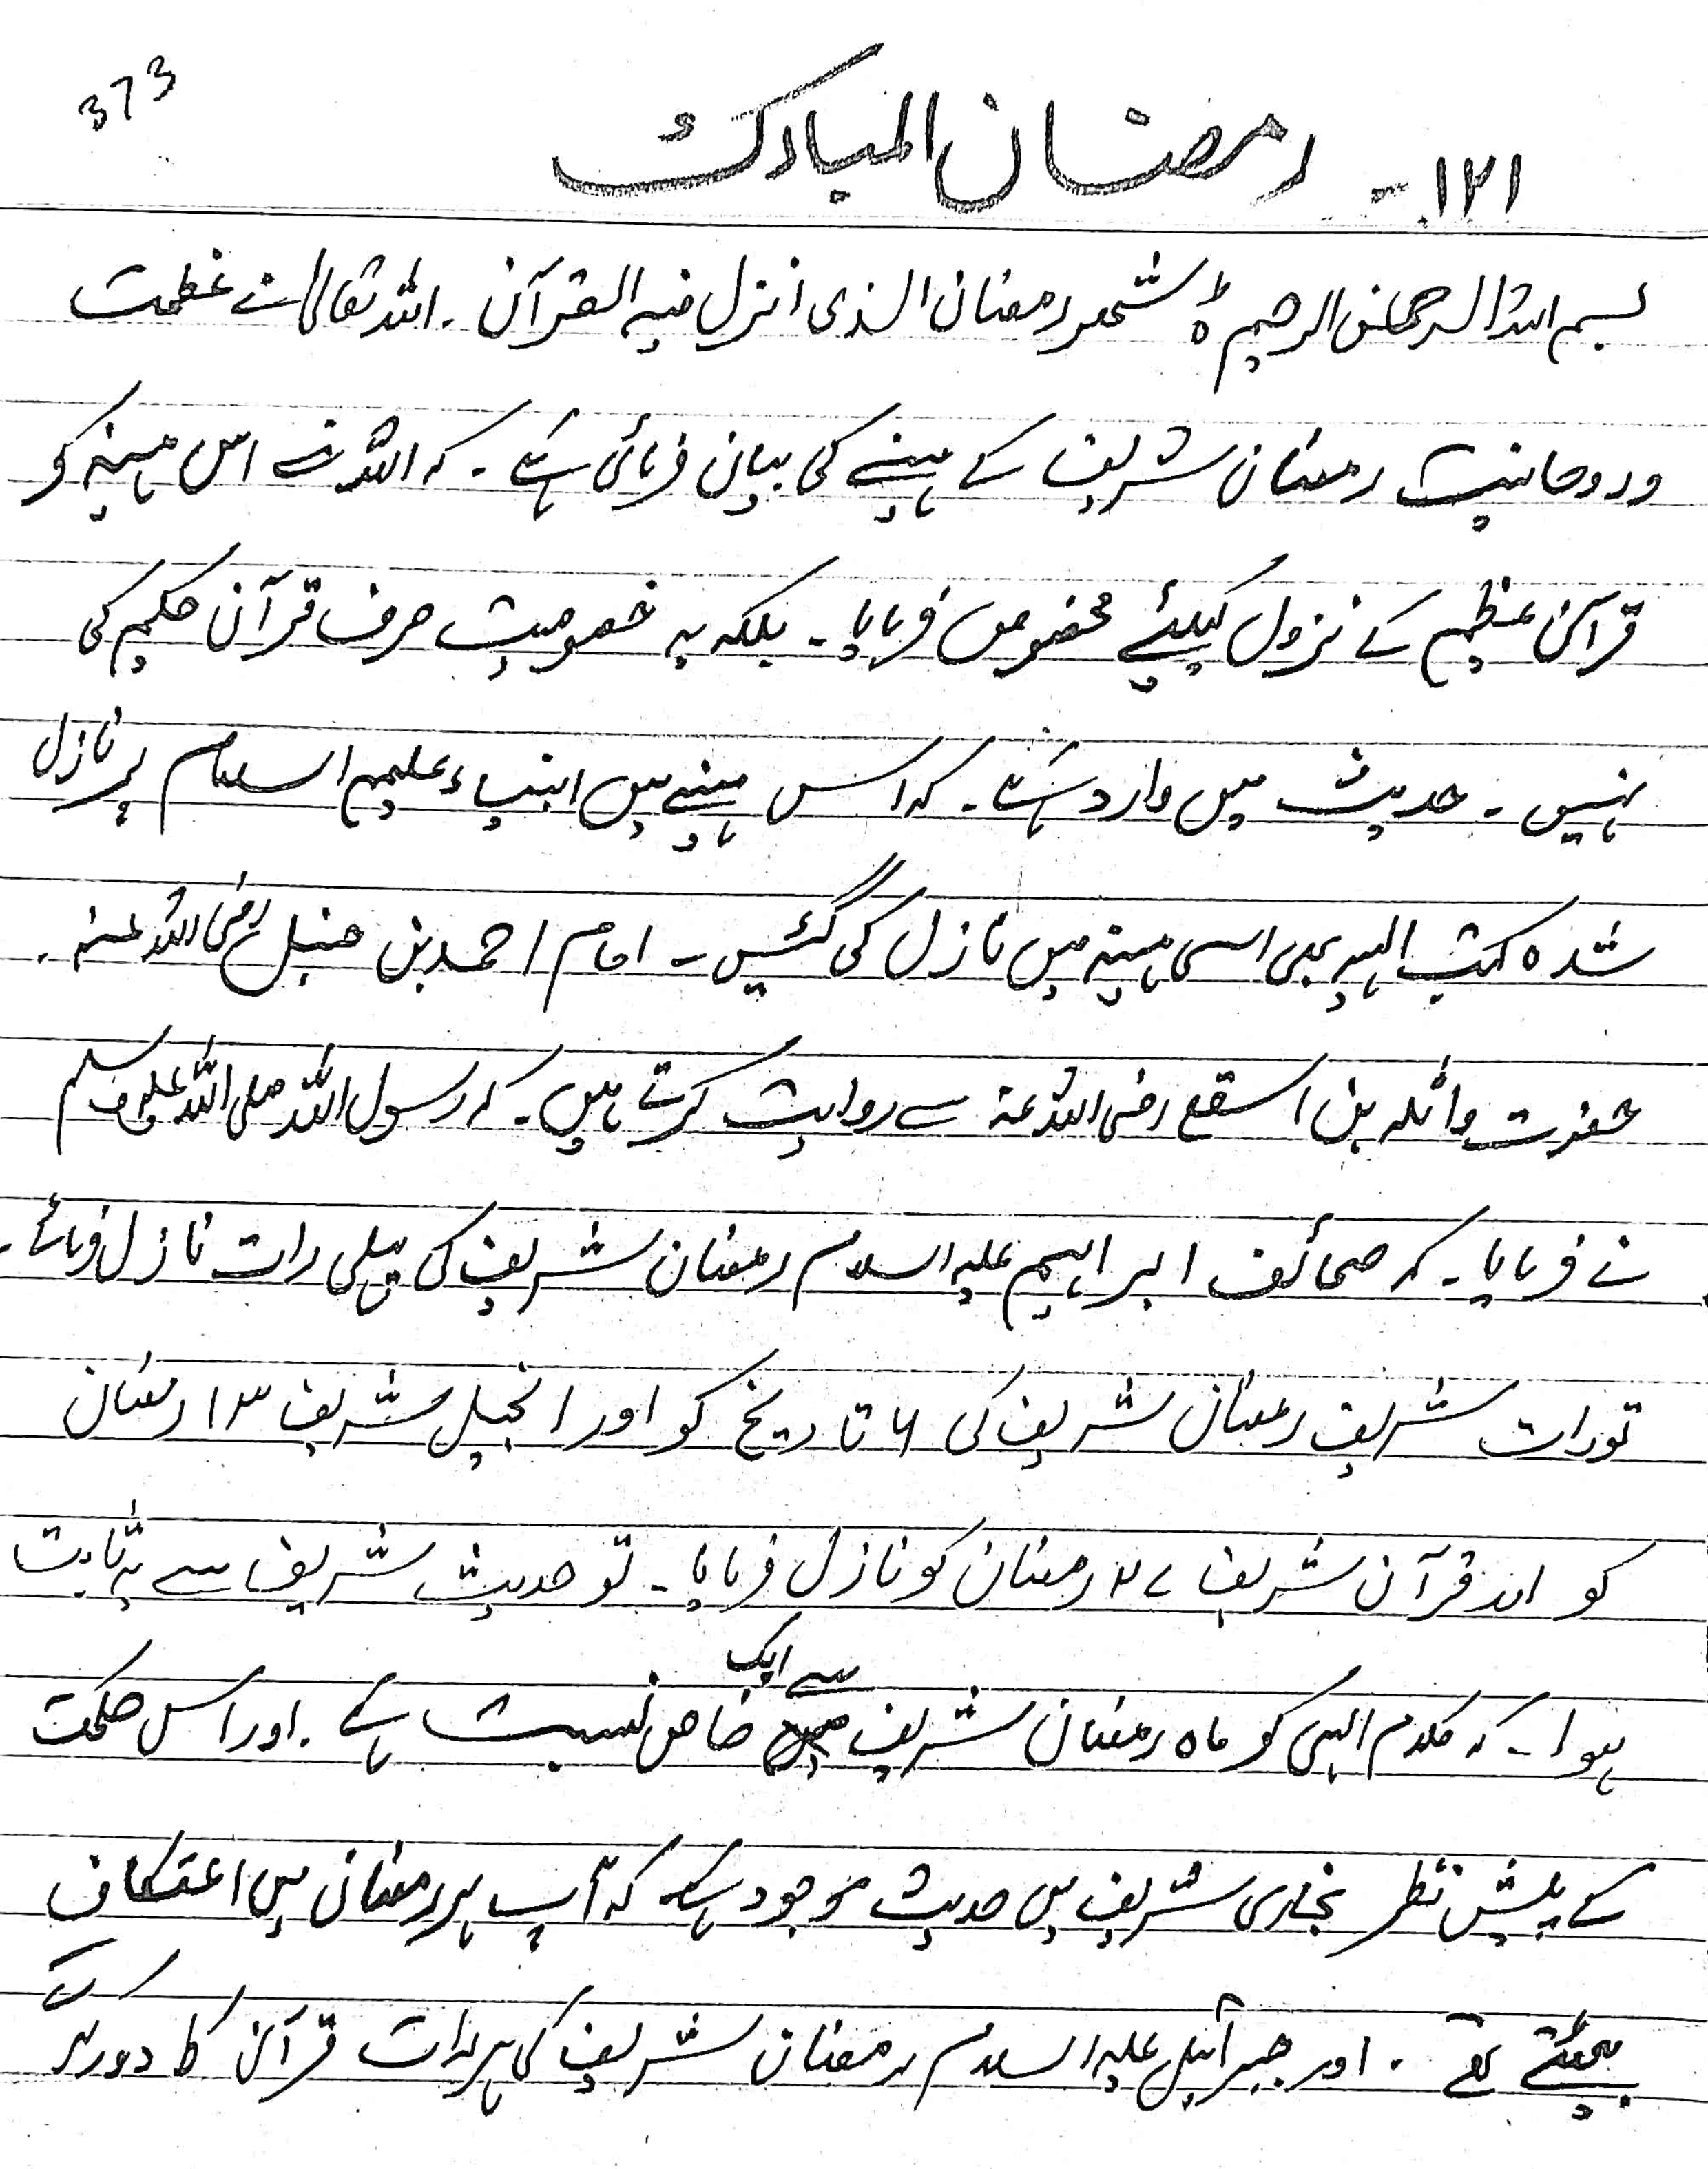 373
۱۲۱- رمضان المبارک
بسم اللہ الرحمٰن الرحیم ہ شھر رمضان الذی انزل فیہ القرآن ۔ اللہ تعالیٰ نے عظمت
و روحانیت رمضان شریف کے مہینے کی بیان فرمائی ہے ۔ کہ اللہ نے اس مہینہ کو
قرآن عظیم کے نزول کیلئے مخصوص فرمایا ۔ بلکہ یہ خصوصیت صرف قرآن حکیم کی
نہیں ۔ حدیث میں وارد ہے ۔ کہ اس مہینے میں انبیاء علیہم السلام پر نازل
شدہ کتب الہیہ بھی اسی مہینہ میں نازل کی گئیں ۔ امام احمد بن حنبل رضی اللہ عنہ ۔
حضرت واثلہ بن اسقع رضی اللہ عنہ سے روایت کرتے ہیں ۔ کہ رسول اللہ صلی اللہ علیہ وسلم
نے فرمایا ۔ کہ صحائف ابراہیم علیہ السلام رمضان شریف کی پہلی رات نازل فرمائے ۔
تورات شریف رمضان شریف کی ۶ تاریخ کو اور انجیل شریف ۱۳ رمضان
کو اور قرآن شریف ۲۷ رمضان کو نازل فرمایا ۔ تو حدیث شریف سے یہ ثابت
ہوا ۔ کہ کلام الہی کو ماہ رمضان شریف سے ایک خاص نسبت ہے ۔ اور اس حکمت
کے پیش نظر بخاری شریف میں حدیث موجود ہے کہ آپ ہر رمضان میں اعتکاف
بیٹھتے تھے ۔ اور جبرائیل علیہ السلام رمضان شریف کی ہر رات قرآن کا دور کرتے